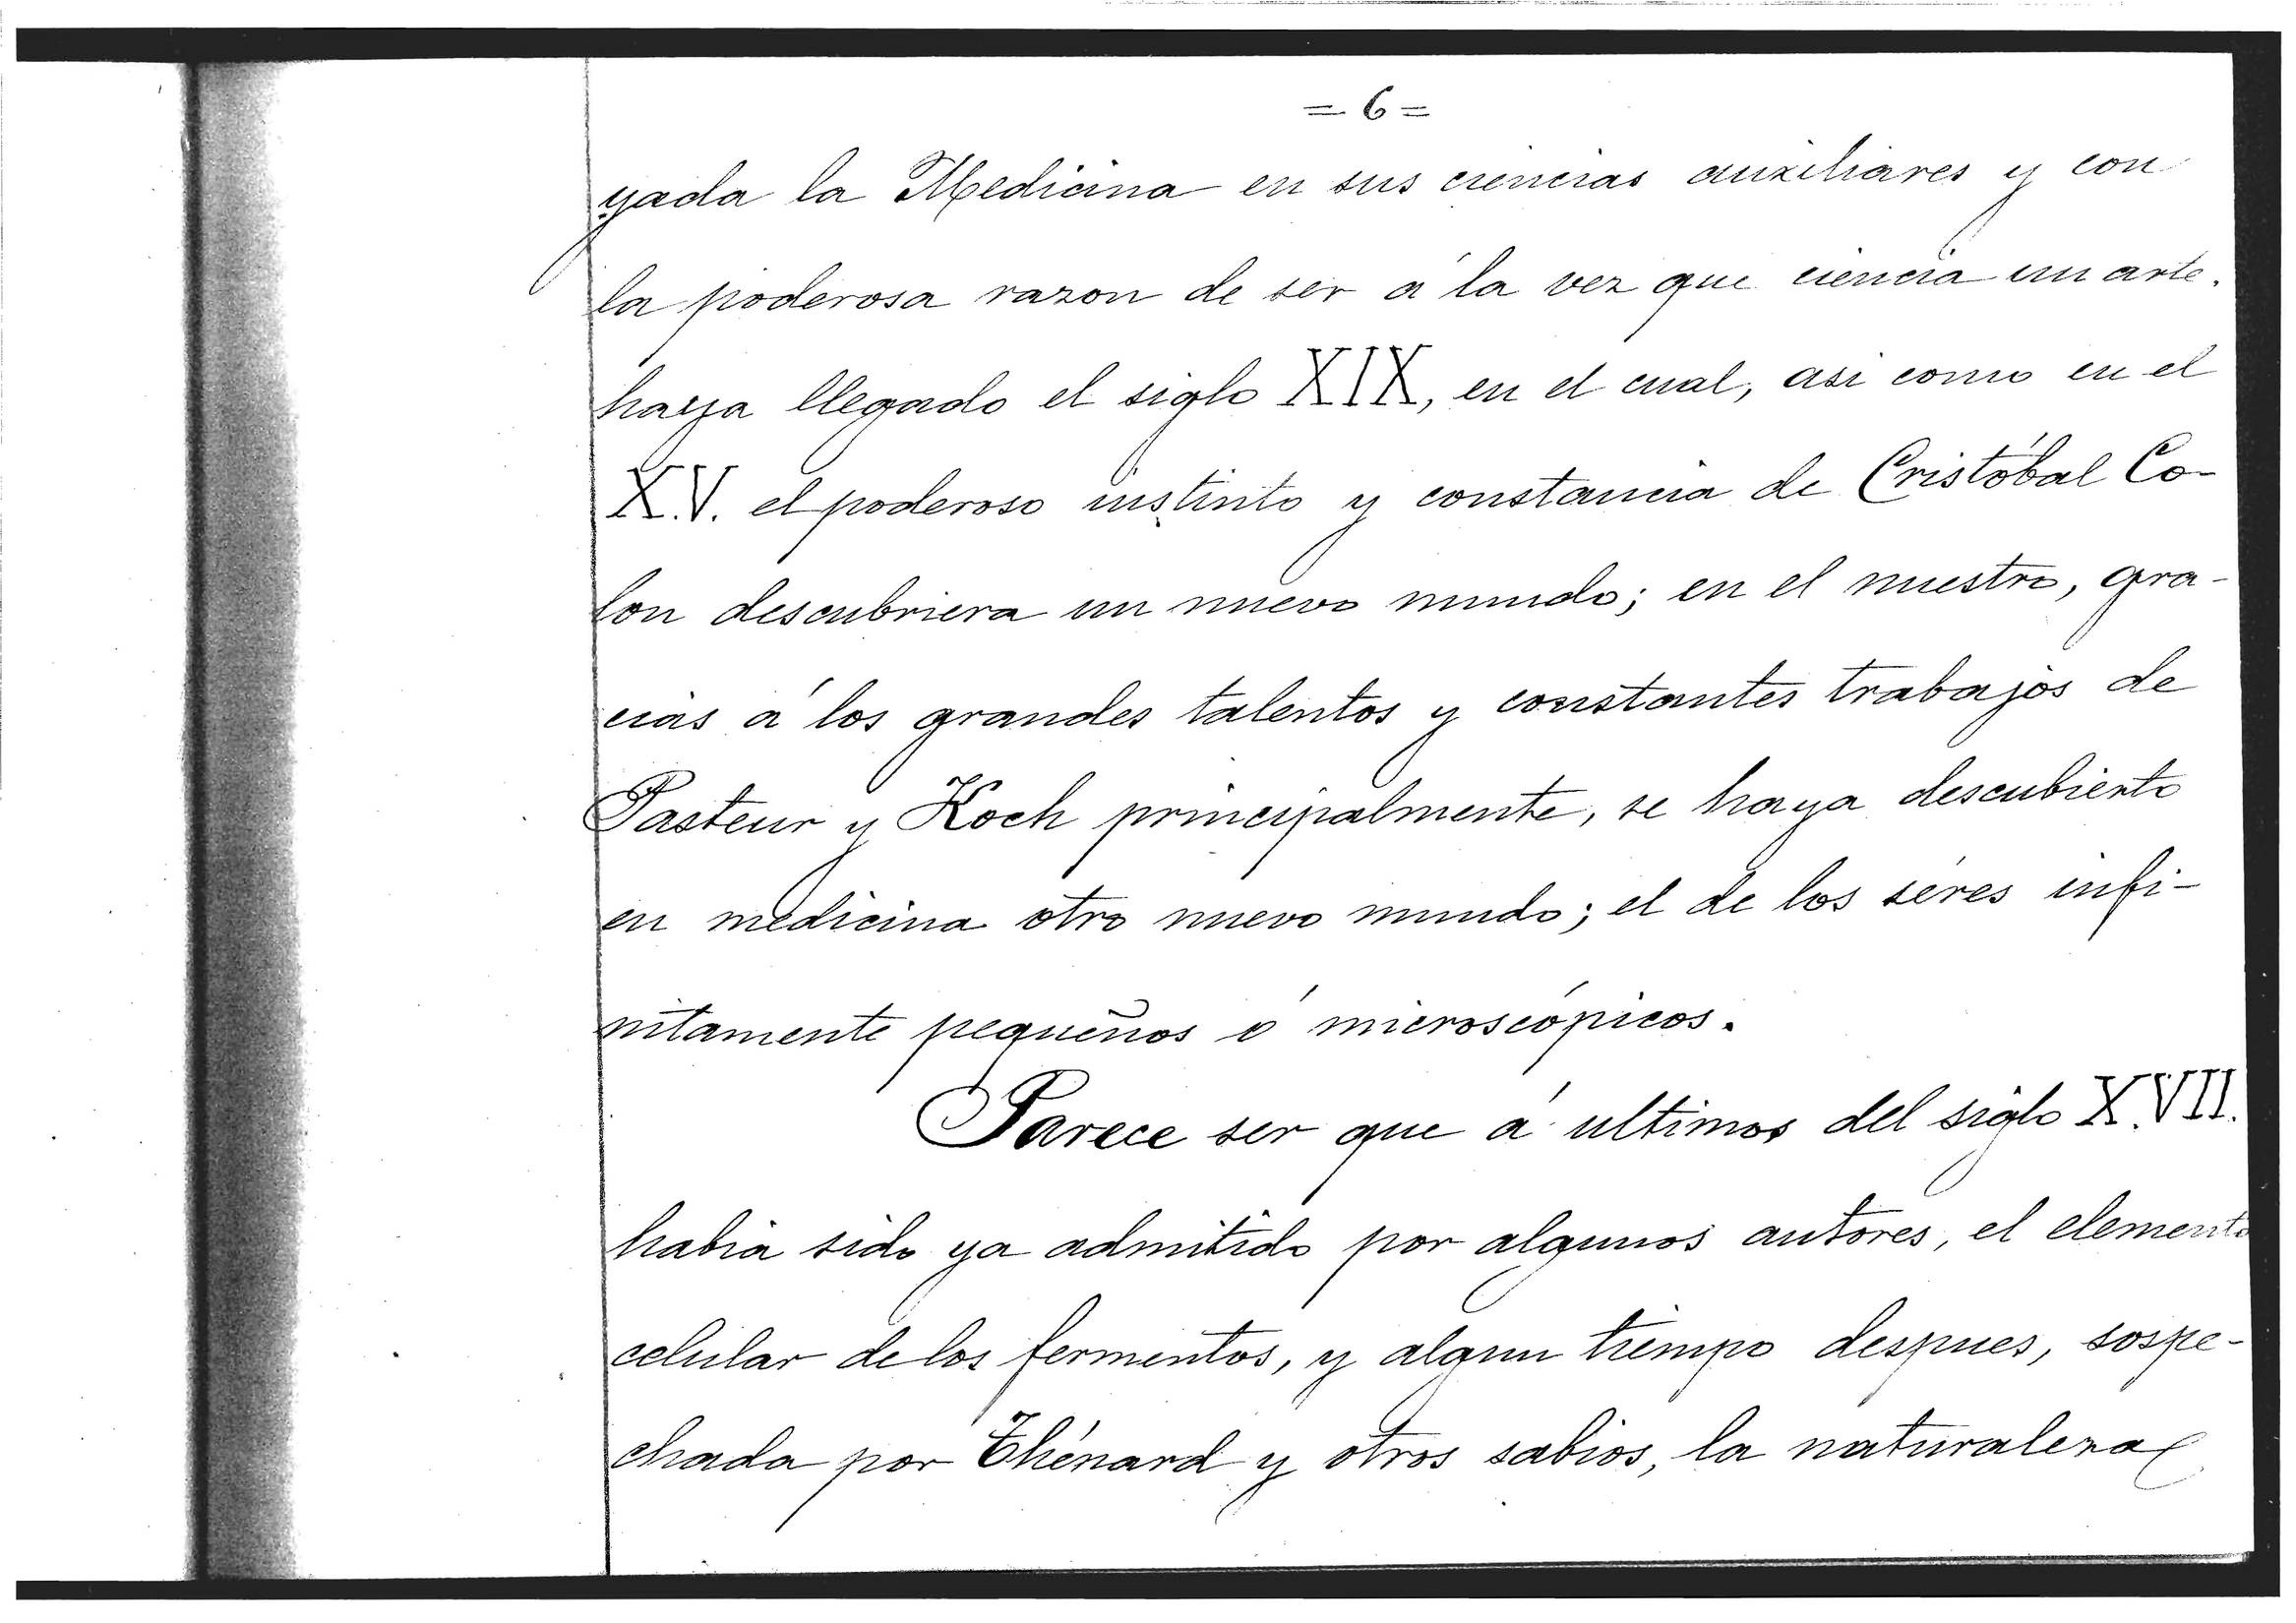 = 6 =
yada la Medicina en sus ciencias auxiliares y con
la poderosa razon de ser á la vez que ciencia un arte.
haya llegado el siglo XIX, en el cual, asi como en el
X.V. el poderoso instinto y constancia de Cristóbal Co-
lon descubriera un nuevo mundo; en el nuestro, gra-
cias á los grandes talentos y constantes trabajos de
Pasteur y Koch principalmente, se haya descubierto
en medicina otro nuevo mundo; el de los séres infi-
nitamente pequeños ó microscópicos.
Parece ser que á ultimos del siglo X.VII.
habia sido ya admitido por algunos autores, el elemento
celular de los fermentos, y algun tiempo despues, sospe-
chada por Thénard y otros sabios, la naturaleza